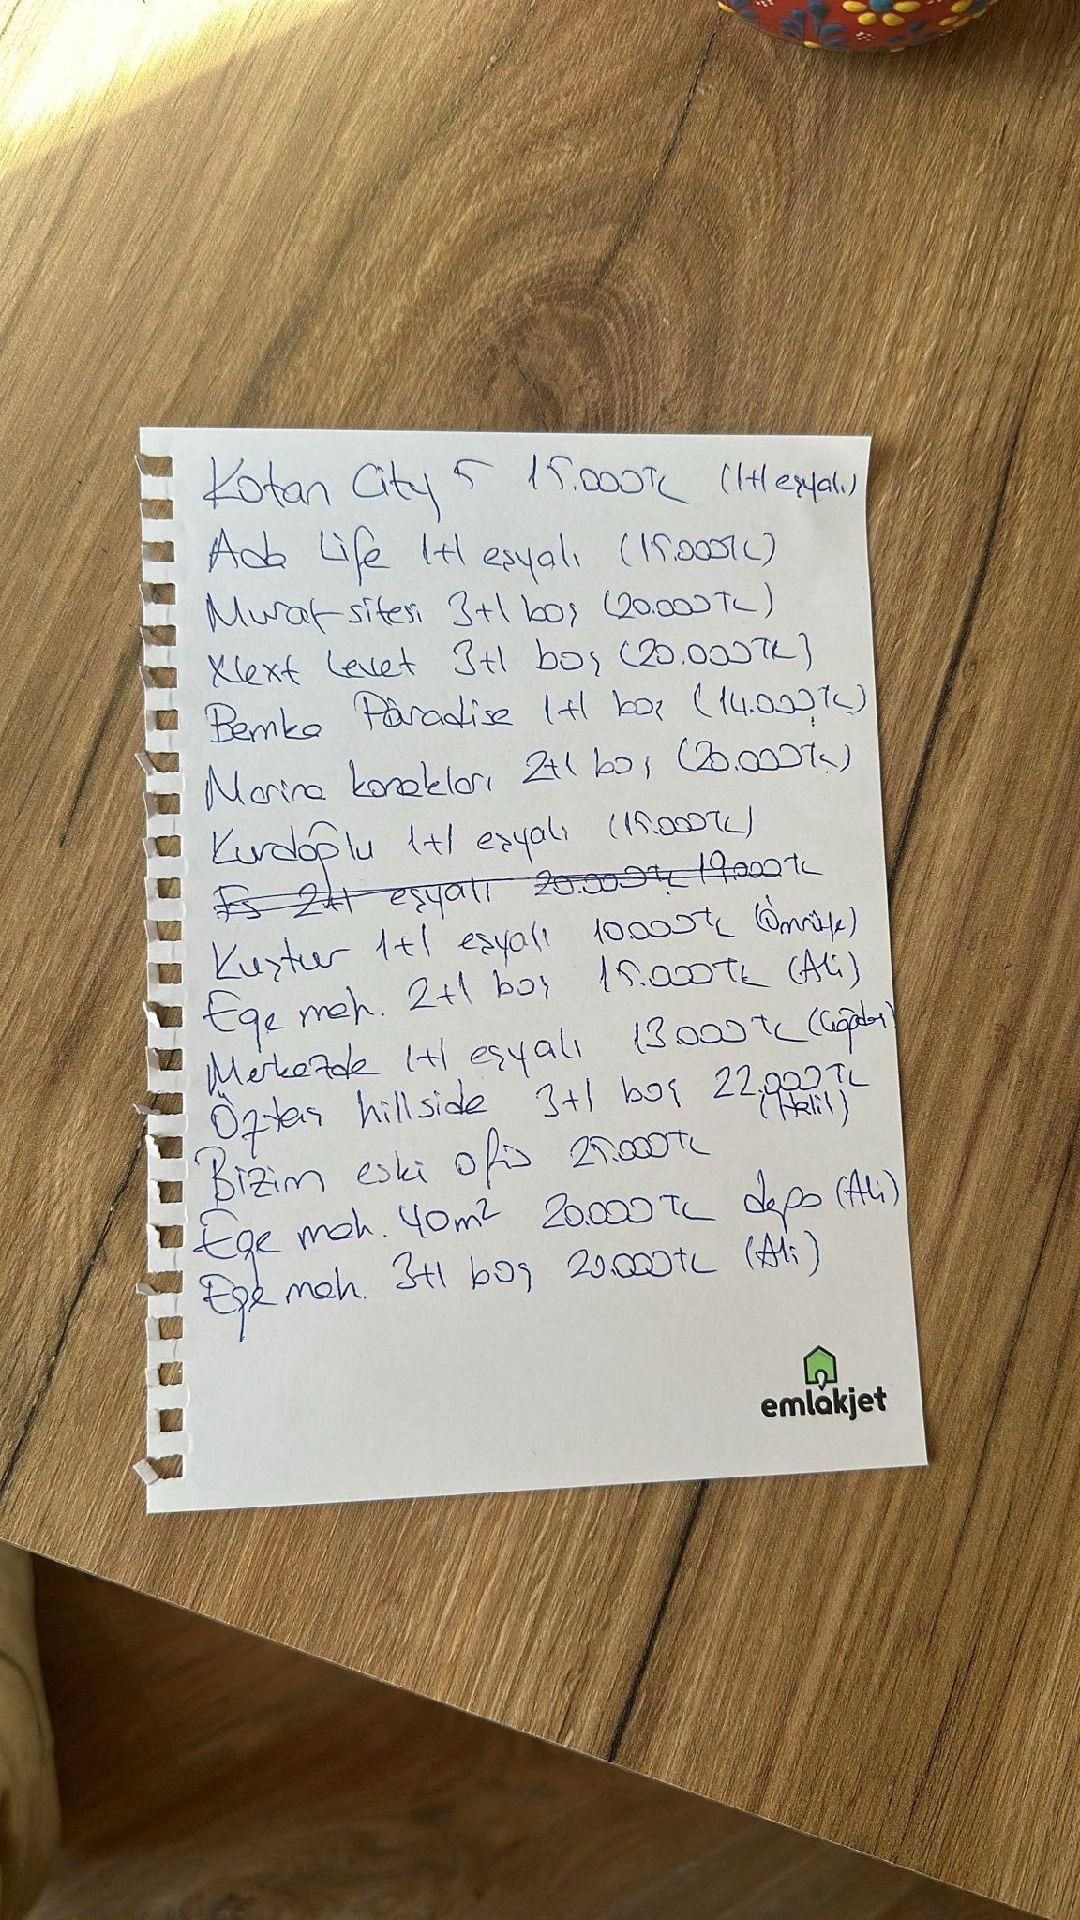 Kotan City 5 15.000TL (1+1 eşyalı)
Ada Life 1+1 eşyalı (15.000TL)
Murat sitesi 3+1 boş (20.000TL)
Next Level 3+1 boş (20.000TL)
Bemka Paradise 1+1 boş (14.000TL)
Marina konakları 2+1 boş (20.000TL)
Kurdoğlu 1+1 eşyalı (15.000TL)
2+1 eşyalı 20.000TL 19.000TL
Kuştur 1+1 eşyalı 10000TL
Ege mah. 2+1 boş 15.000TL (Ali)
Merkezde 1+1 eşyalı 13.000TL
Öztaş hillside 3+1 boş 22.000TL
(Halil)
Bizim eski ofis 25.000TL
Ege mah. 40m² 20.000TL depo (Ali)
Ege mah. 3+1 boş 20.000TL (Ali)
emlakjet